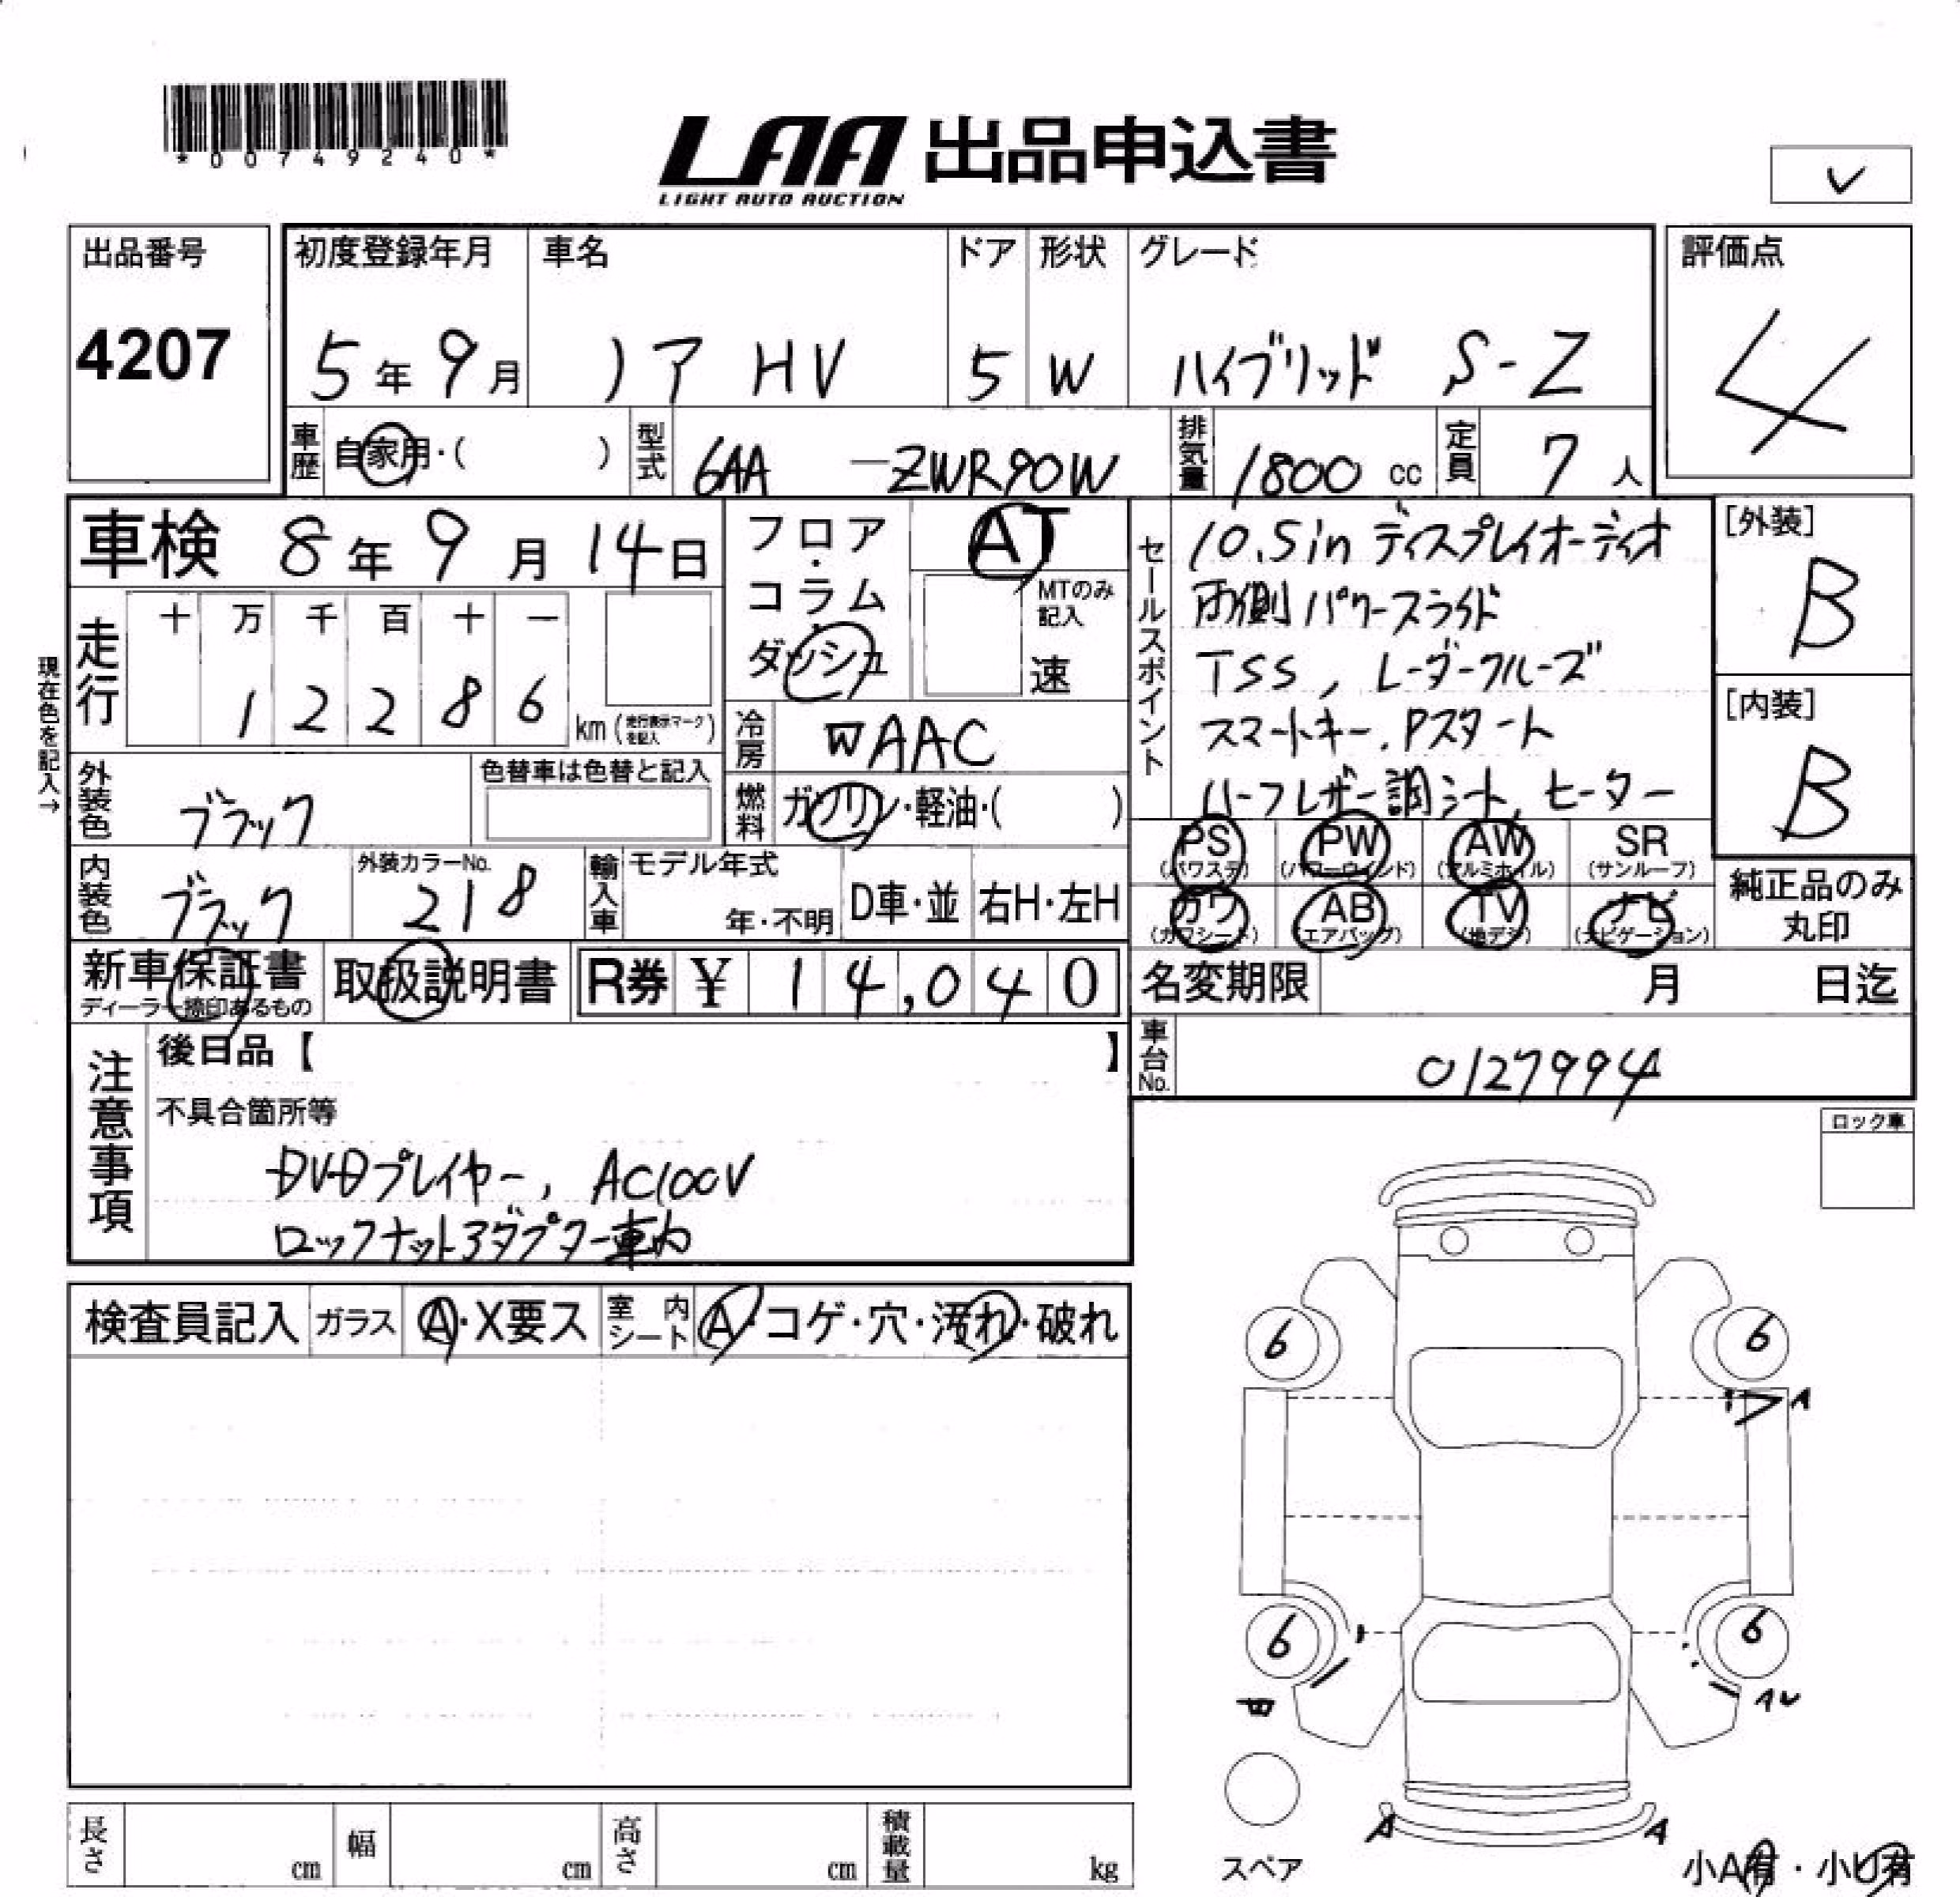 *00749240*
LAA 出品申込書
LIGHT AUTO AUCTION
出品番号 初度登録年月 車名 ドア 形状 グレード 評価点
4207 5年9月 ノア HV 5 W ハイブリッド S-Z 4
車歴 自家用・( ) 型式 6AA -ZWR90W 排気量 1800 cc 定員 7人
車検 8年9月14日 フロア・コラム・ダッシュ AT
MTのみ記入 速
セールスポイント
10.5in ディスプレイオーディオ
両側パワースライド
TSS, レーダークルーズ
スマートキー, Pスタート
ハーフレザー調シート, ヒーター
[外装]
B
[内装]
B
現在色を記入→
走行 十 万 千 百 十 一
12286 km (走行表示マークを記入)
冷房 WAAC
外装色 ブラック 色替車は色替と記入
燃料 ガソリン・軽油・( )
内装色 ブラック 外装カラーNo. 218 輸入車 モデル年式 年・不明 D車・並 右H・左H
PS (パワステ) PW (パワーウインド) AW (アルミホイル) SR (サンルーフ)
カワ (カワシート) AB (エアバッグ) TV (地デジ) ナビ (ナビゲーション)
純正品のみ丸印
新車保証書 ディーラー捺印あるもの 取扱説明書 R券 ¥ 14,040
名変期限 月 日迄
車台No. 0127994
注意事項
後日品【 】
不具合箇所等
DVDプレイヤー, AC100V
ロックナットアダプター車内
ロック車
検査員記入 ガラス A・X要ス 室内シート A・コゲ・穴・汚れ・破れ
6 6
A
6 6
A A
スペア
小A有・小U有
長さ cm 幅 cm 高さ cm 積載量 kg